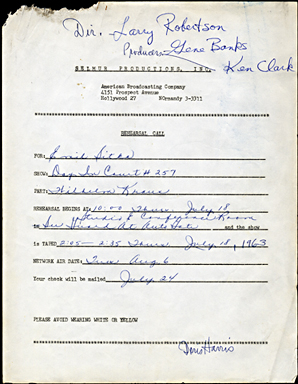 Dir. Larry Robertson
Producers Gene Banks
Ken Clark
SELMUR PRODUCTIONS, INC.
American Broadcasting Company
4151 Prospect Avenue
Hollywood 27 NOrmandy 3-3311
REHEARSAL CALL
FOR: Emil Sitka
SHOW: Day In Court #257
PART: Kraus
REHEARSAL BEGINS AT 10:00 Thurs July 18
Studio E Conference Room
IN Guard At Auto Gate and the show
is TAPED 2:05 - 2:35 Thurs July 18, 1963
NETWORK AIR DATE: Tues Aug 6
Your check will be mailed July 24
PLEASE AVOID WEARING WHITE OR YELLOW
Harris